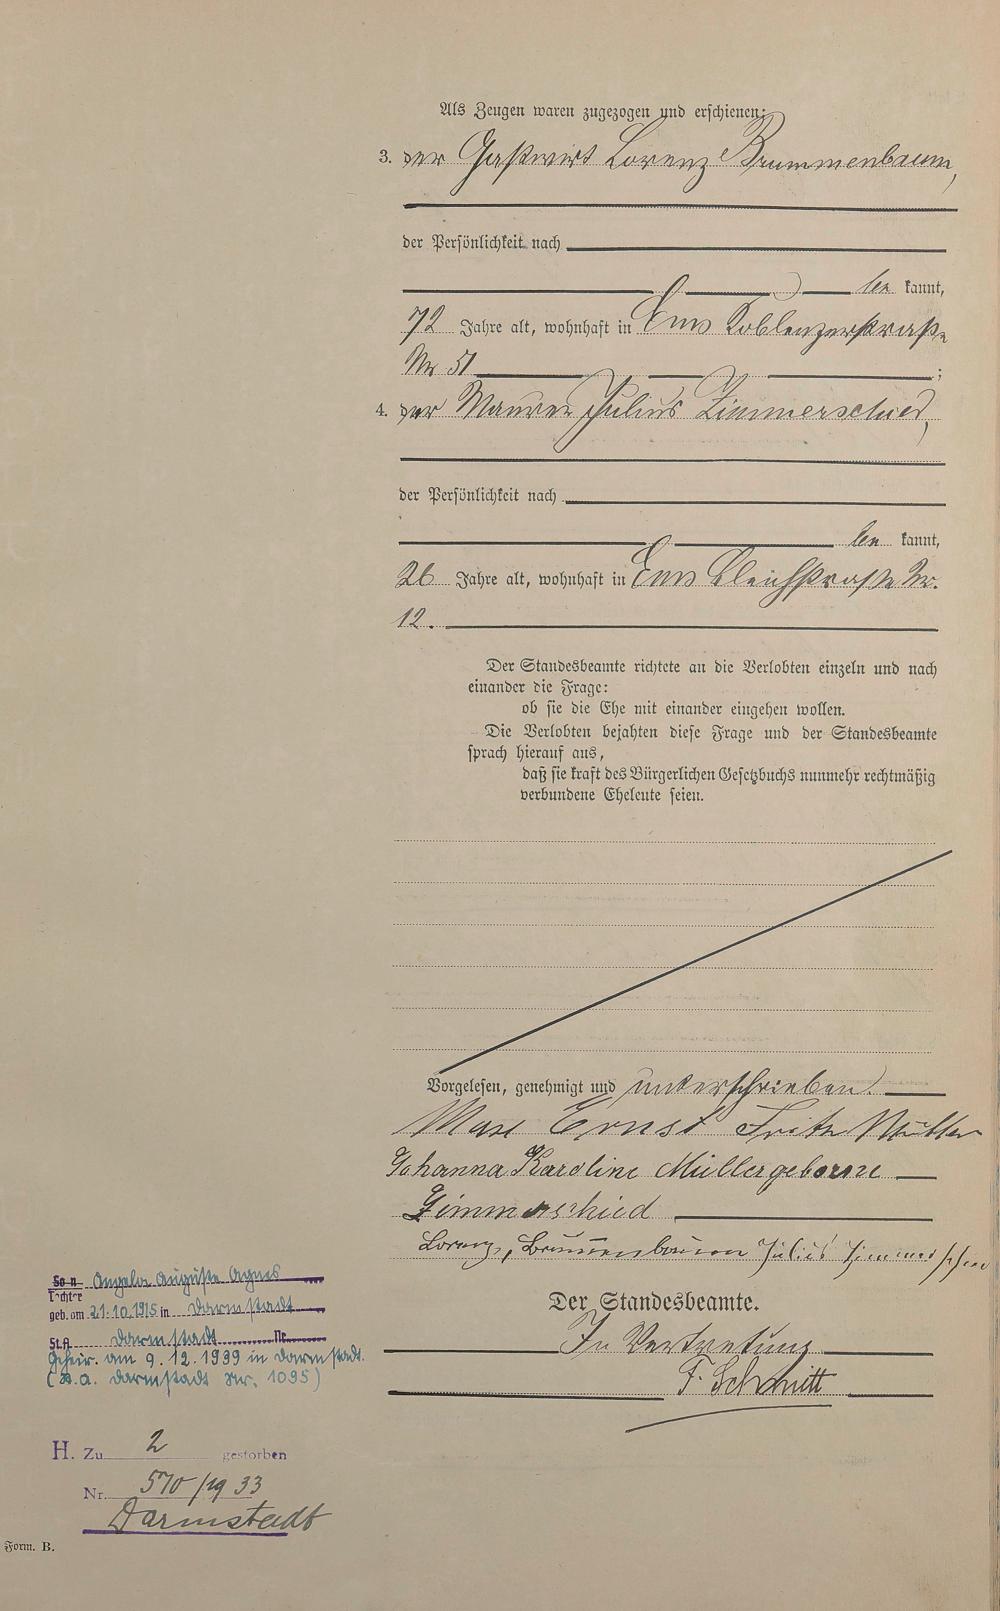 Als Zeugen waren zugezogen und erschienen:
3. der Gastwirt Lorenz Brummenbaum,
der Persönlichkeit nach
be kannt,
72 Jahre alt, wohnhaft in Ems Koblenzerstraße
Nr 51 ;
4. der Maurer Julius Zimmerschied,
der Persönlichkeit nach
be kannt,
26 Jahre alt, wohnhaft in Ems Bleichstraße Nr.
12.
Der Standesbeamte richtete an die Verlobten einzeln und nach
einander die Frage:
ob sie die Ehe mit einander eingehen wollen.
Die Verlobten bejahten diese Frage und der Standesbeamte
sprach hierauf aus,
daß sie kraft des Bürgerlichen Gesetzbuchs nunmehr rechtmäßig
verbundene Eheleute seien.
Vorgelesen, genehmigt und unterschrieben.
Max Ernst Fritz Müller
Johanna Karoline Müller geborne
Zimmerschied
Lorenz, Brummenbaum Julius Zimmerschied
Der Standesbeamte.
In Vertretung
F. Schmitt
Sohn Angela Auguste Agnes
Tochter
geb. am 21.10.1915 in Darmstadt
St.A. Darmstadt Nr.
Geheir. am 9.12.1939 in Darmstadt.
(St.A. Darmstadt Nr. 1095)
H. Zu 2 gestorben
Nr. 570/1933
Darmstadt
Form. B.